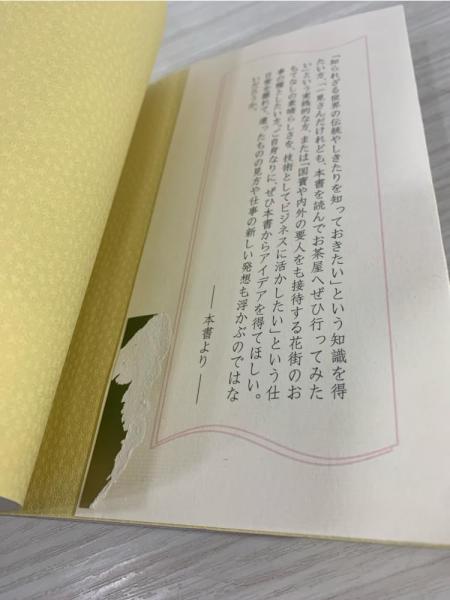 「知られざる世界の伝統やしきたりを知っておきたい」という知識を得
たい方、「一見さんだけれども、本書を読んでお茶屋へぜひ行ってみた
い」という実践的な方、または「国賓や内外の要人をも接待する花街のお
もてなしの素晴らしさを、技術としてビジネスに活かしたい」という仕
事の糧としたい方。ご自身なりに、ぜひ本書からアイデアを得てほしい。
日常を離れて、違ったものの見方や仕事の新しい発想も浮かぶのではな
いだろうか。
――本書より――